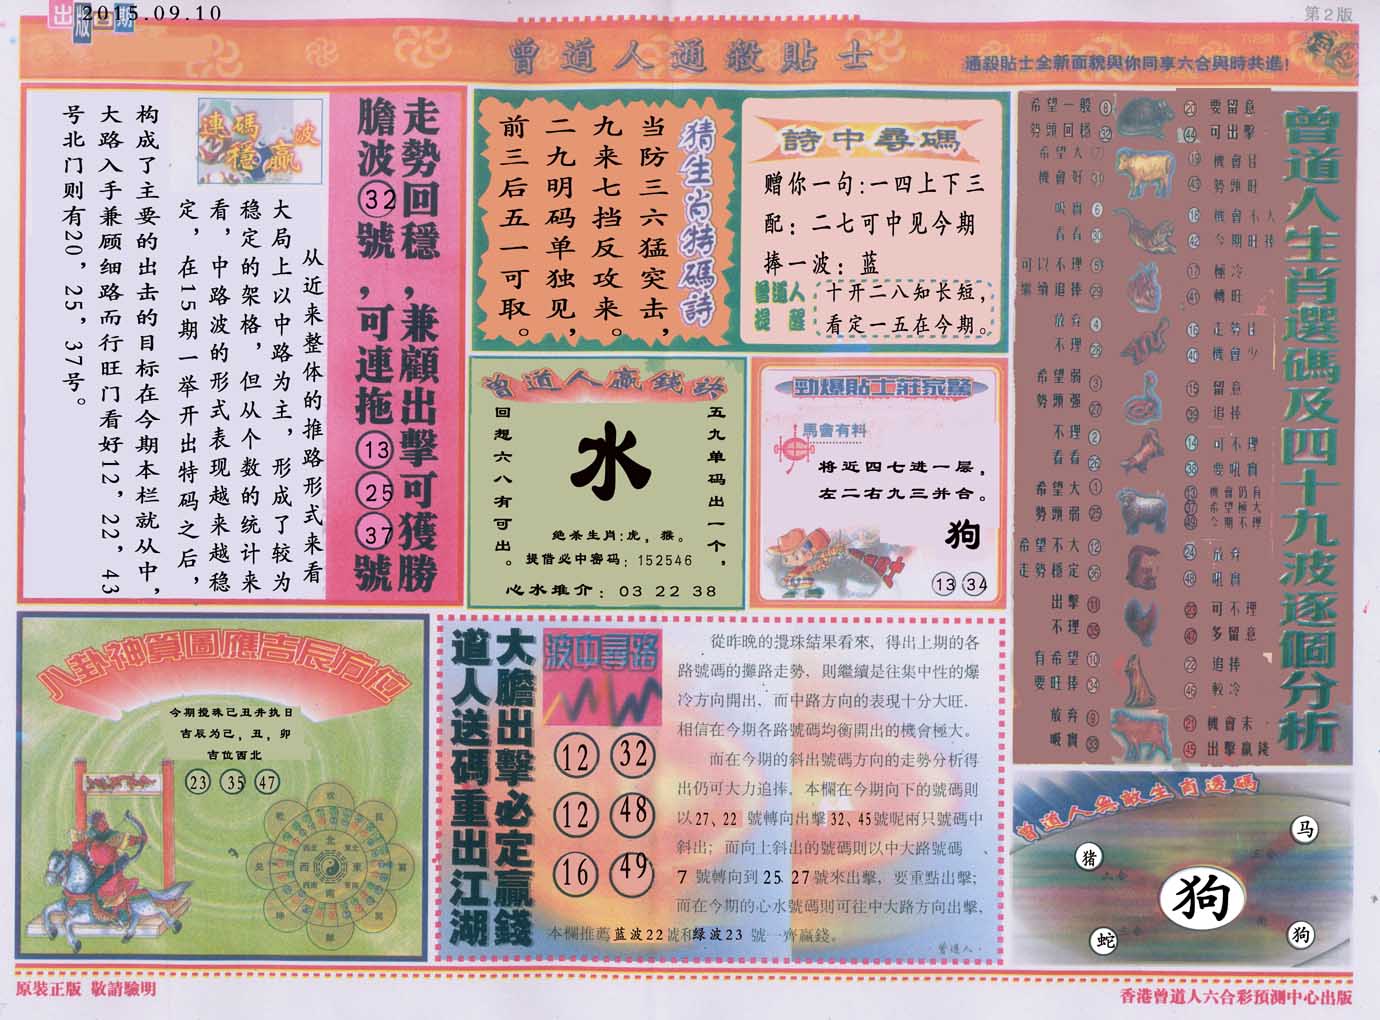 出版日期
2015.09.10
第2版
曾道人通殺貼士
通殺貼士全新面貌與你同享六合與時共進!
走勢回穩,兼顧出擊可獲勝
膽波32號,可連拖13 25 37號
連碼波
穩赢
从近来整体的推路形式来看
大局上以中路为主,形成了较为
稳定的架格,但从个数的统计来
看,中路波的形式表现越来越稳
定,在15期一举开出特码之后,
构成了主要的出击的目标在今期本栏就从中,
大路入手兼顾细路而行旺门看好12,22,43
号北门则有20,25,37号。
猜生肖特碼詩
当防三六猛突击,
九来七挡反攻来。
二九明码单独见,
前三后五一可取。
詩中尋碼
赠你一句:一四上下三
配:二七可中见今期
捧一波:蓝
曾道人
提醒
十开二八知长短,
看定一五在今期。
曾道人贏錢诀
五九单码出一个,
回想六八有可出。
水
绝杀生肖:虎,猴。
提借必中密码:152546
心水推介:03 22 38
勁爆貼士莊家驚
馬會有料
将近四七进一层,
左二右九三并合。
狗
13 34
曾道人生肖選碼及四十九波逐個分析
希望一般
勢頭回穩 32
20 要留意
44 可出擊
希望大
機會好
19
43 勢頭旺
吸實 6
看看 30
18 機會不大
42 今期旺捧
可以不理 5
繼續追捧 29
17 極冷
41 轉旺
放弃 4
不理
16
40 機會少
希望弱 3
勢頭强 27
15 留意
39 追捧
不理 2
看看 26
14 可不理
38 要吼實
希望大 1
勢頭弱 25
13 機會仍有
37 希望極大
49 今期不理
希望不大 12
走勢穩定 36
24 放弃
48 吼實
出擊 11
不理 35
23 可不理
47 多留意
有希望 10
要旺捧 34
22 追捧
46 較冷
放弃 9
吸實 33
21 機會末
45 出擊贏錢
八卦神算圖應吉辰方位
今期攪珠己丑并执日
吉辰为己,丑,卯
吉位西北
23 35 47
北
西 東
南
大膽出擊必定贏錢
道人送碼重出江湖
波中尋路
12 32
12 48
16 49
從昨晚的攪珠結果看來,得出上期的各
路號碼的攤路走勢,則繼續是往集中性的爆
冷方向開出,而中路方向的表現十分大旺.
相信在今期各路號碼均衡開出的機會極大。
而在今期的斜出號碼方向的走勢分析得
出仍可大力追捧,本欄在今期向下的號碼則
以27、22 號轉向出擊32、45號呢兩只號碼中
斜出;而向上斜出的號碼則以中大路號碼、
7 號轉向到25 27號來出擊,要重點出擊;
而在今期的心水號碼則可往中大路方向出擊,
本欄推薦蓝波22號和绿波23 號一齊贏錢。
曾道人.
曾道人無敵生肖透碼
马
猪
狗
蛇
狗
原裝正版 敬請驗明
香港曾道人六合彩預測中心出版